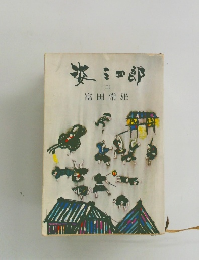 姿三四郎
富田常雄